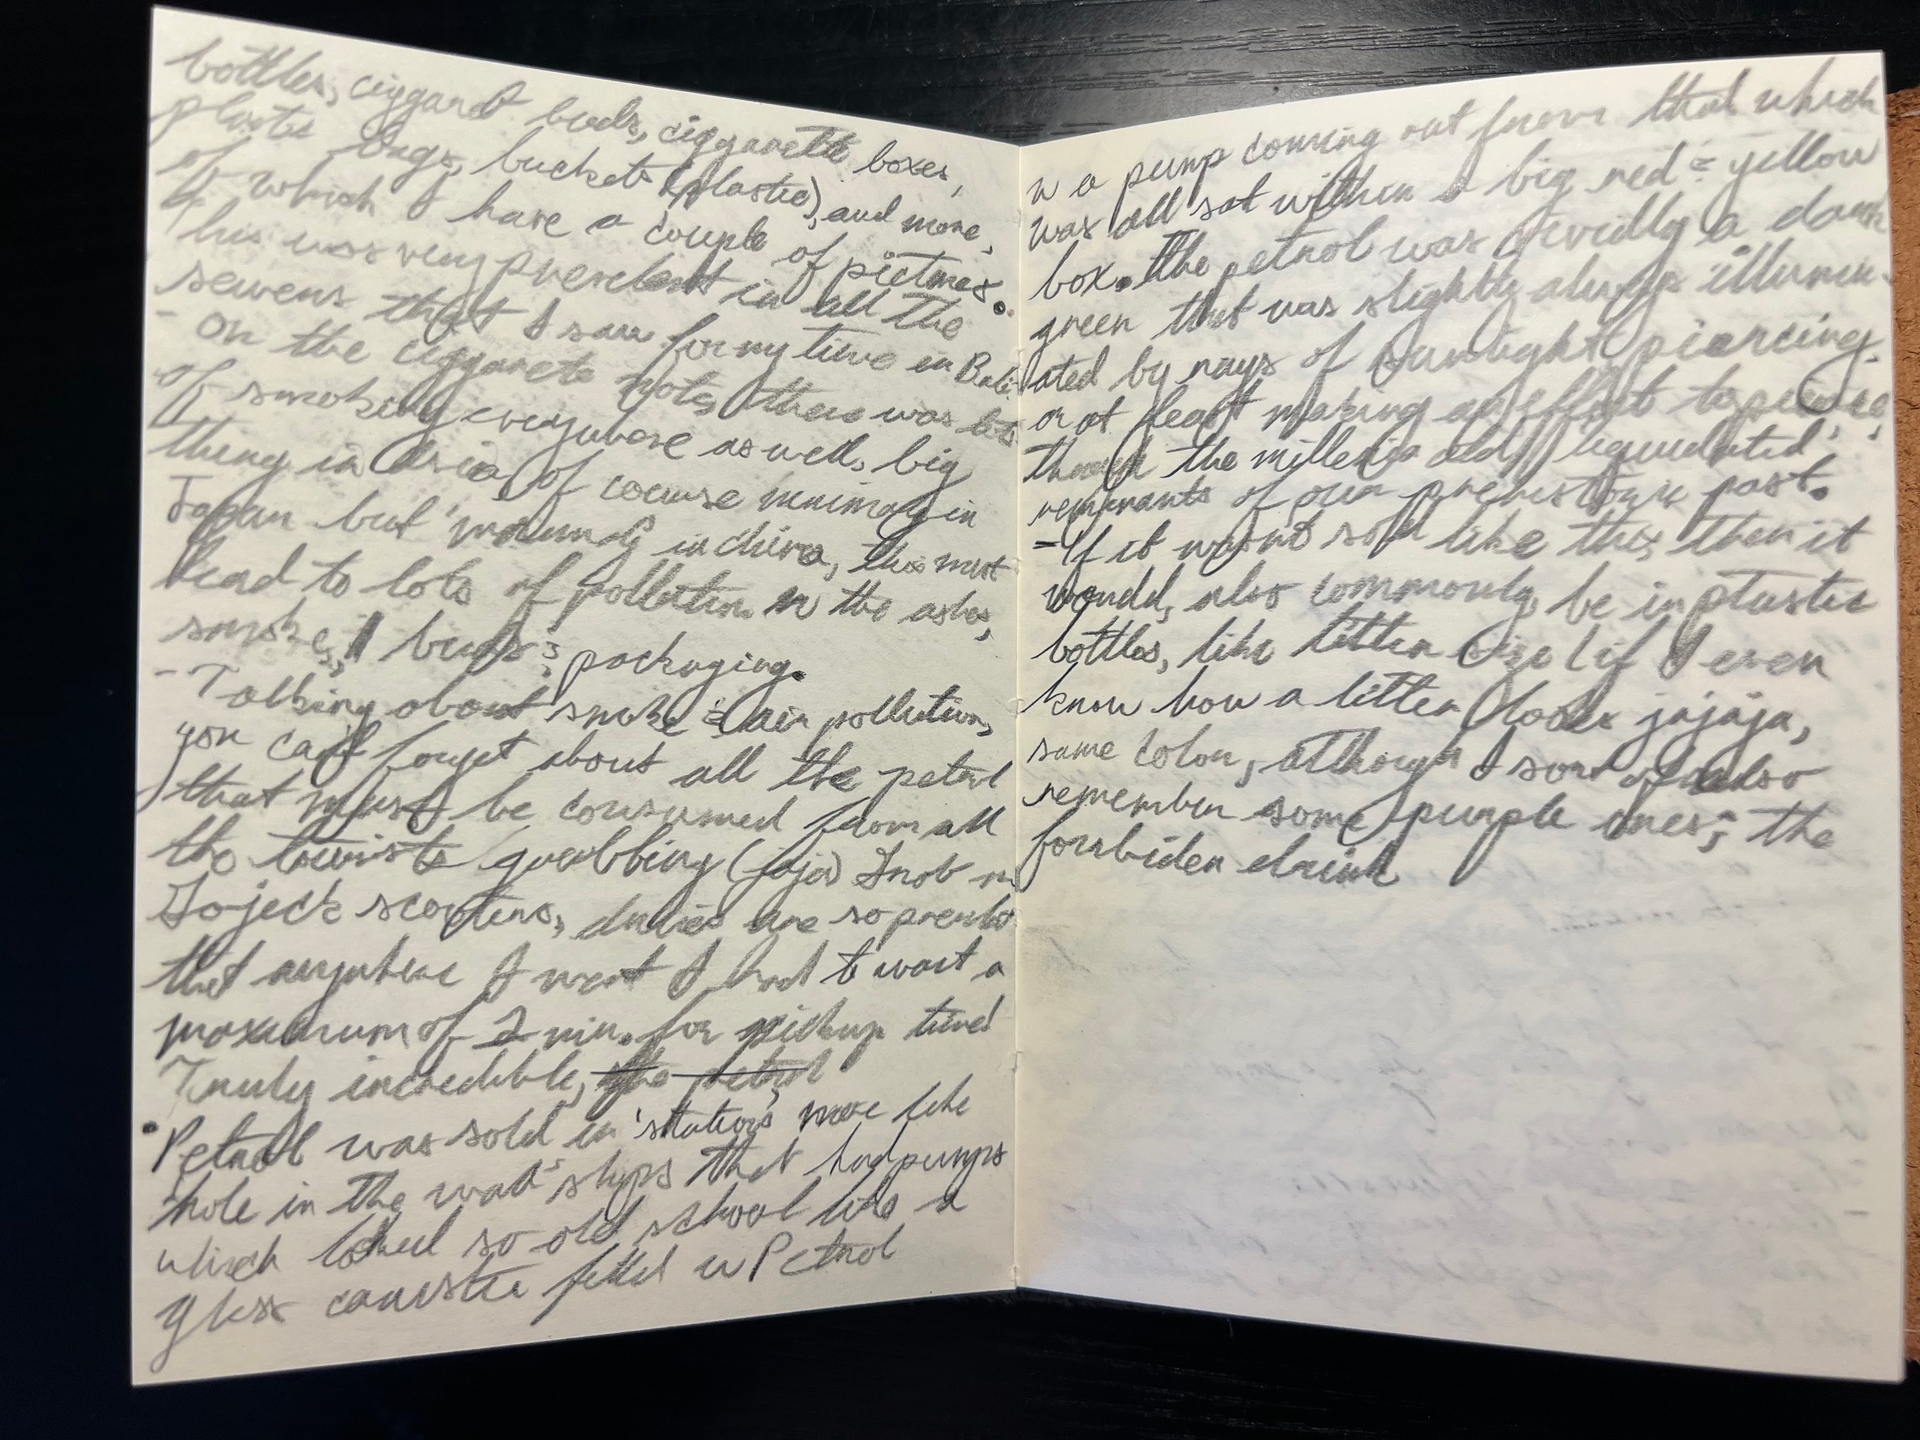 bottles, ciggaret buds, ciggarette boxes,
plastic bags, buckets (plastic), and more,
of which I have a couple of pictures.
This was very prevelent in all the
sewers that I saw for my time in Bali
- On the ciggarete note, there was lots
of smoking everywhere as well, big
thing in Asia, of course minimaly in
Japan but 'mound' in China, this must
lead to lots of pollution in the ashes,
smoke, buds & packaging.
- Talking about smoke & air pollution,
you can't forget about all the petrol
that must be consumed from all
the tourists grabbing (jaja) Grab n
Gojeck scooters, are so prevelent
that anywhere I went I had to wait a
maximum of 2 min. for pickup time!
Truly incredible, the petrol
• Petrol was sold in 'stations' more like
hole in the wall shops that had pumps
which looked so old school like a
glass canister filled w Petrol
w a pump coming out from that which
was all sat within a big red & yellow
box. The petrol was a dark
green that was slightly always illumin-
ated by rays of sunlight piercing,
or at least making an effort to pierce,
through the millenia old liquidated
remenants of our prehistoric past.
- If it wasn't sold like this, then it
would, also commonly, be in plastic
bottles, like litter size (if I even
know how a litter looks jajaja,
same color, although I sort of also
remember some purple ones; the
forbiden drink